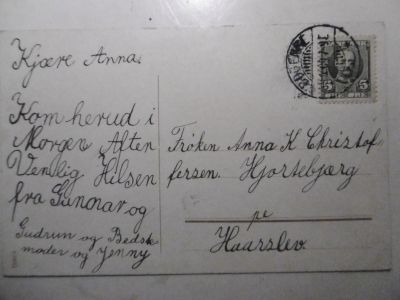 Kjære Anna.
Kom herud i
Morgen Aften
Venlig Hilsen
fra Gunnar og
Gudrun og Bedste
moder og Jenny
Frøken Anna K Christof
fersen. Hjortebjærg
pr
Haarslev
5 5